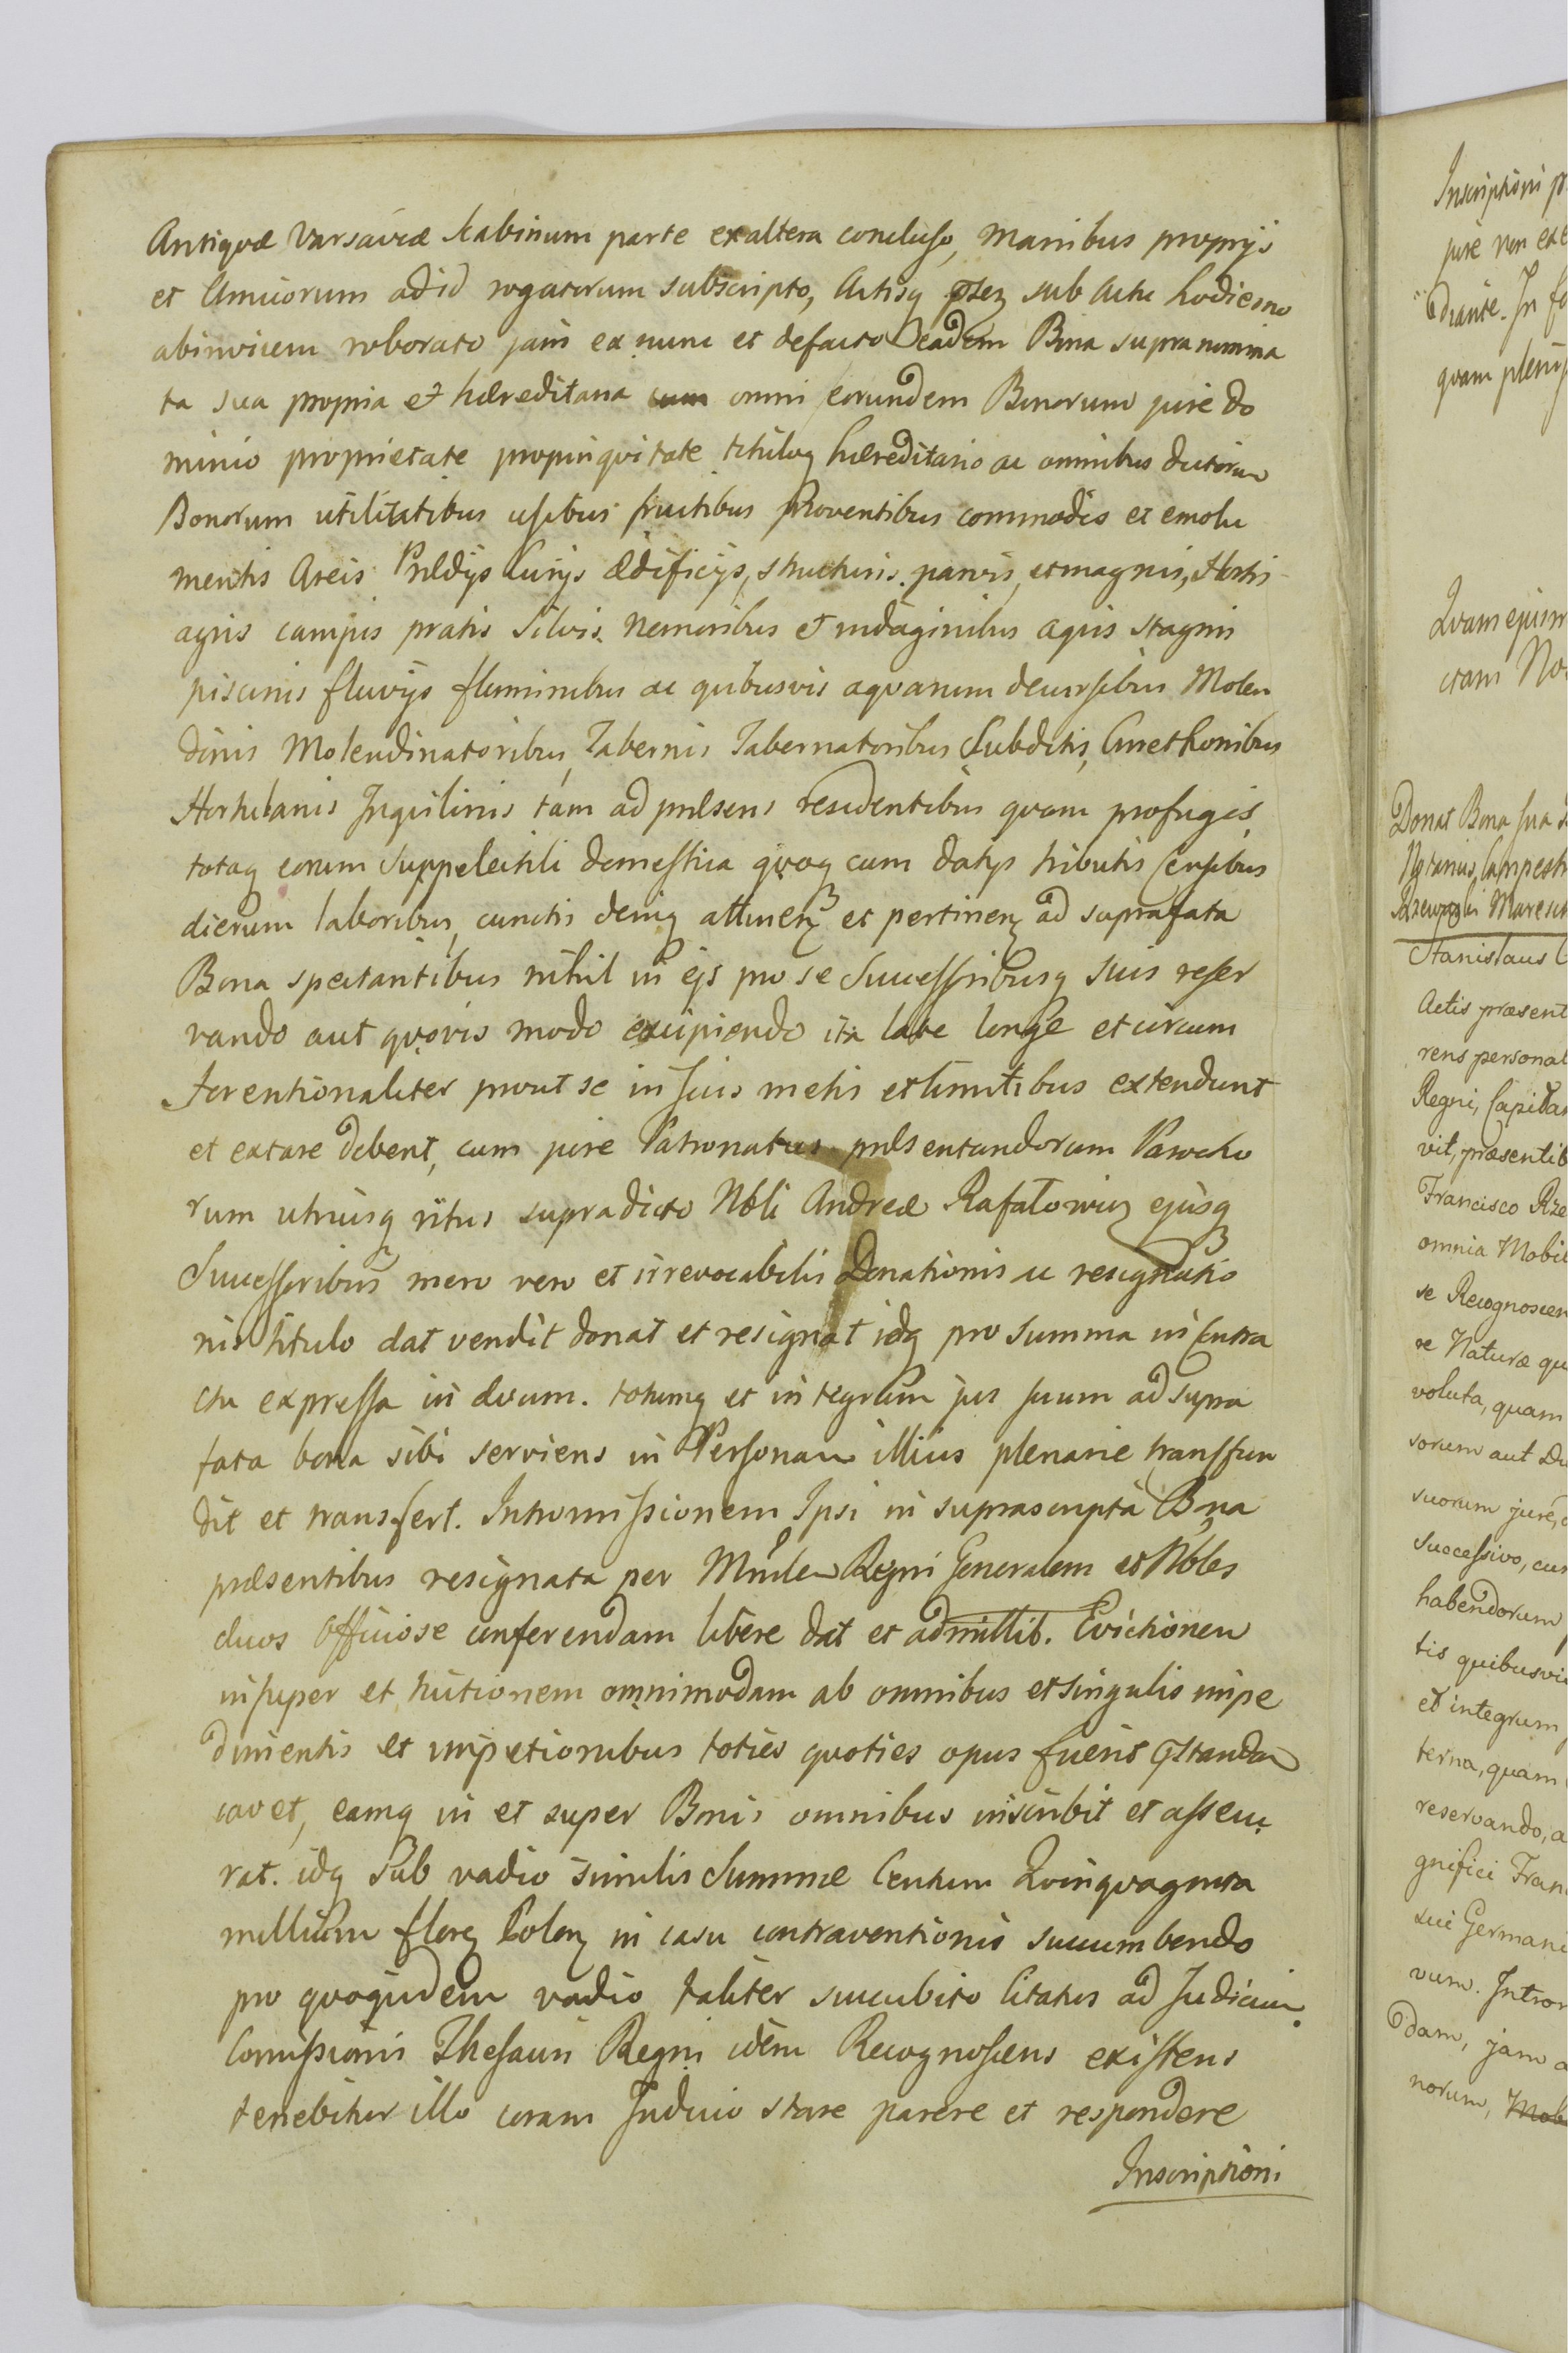 Antiqvæ Varsaviæ Scabinum parte exaltera concluso, Manibus proprijs
et Amicorum adid rogatorum subscripto, Actisq pntz sub Actu hodierno
abinvicem roborato jam exnunc et defacto eadem Bona supranomina
ta sua propria et hæreditaria cum omni eorundem Bonorum jure do
minio proprietate propinqvitate tituloq hæreditario ac omnibus dictorum
Bonorum utilitatibus usibus fructibus proventibus commodis et emolu
mentis Areis Prædijs Curijs ædificijs, structuris parvis, etmagnis, Hortis
agris campis pratis Silvis Nemoribus et indaginibus aqvis stagnis
piscinis fluvijs fluminibus ac qvibusvis aqvarum decursibus Molen
dinis Molendinatoribus, Tabernis Tabernatoribus Subditis, Cmethonibus
Hortulanis Inqvilinis tam ad præsens residentibus qvam profugis,
totaq eorum suppelectili domestica qvoq cum datijs tributis Censibus
dierum laboribus, cunctis deniq attinenz et pertinenz ad suprafata
Bona spectantibus nihil in ejs pro se Successoribusq suis reser
vando aut qvovis modo excipiendo ita late longe et circum
ferentionaliter prout se in suis metis etlimitibus extendunt
et extare debent, cum jure Patronatus præsentandorum Parocho
rum utriusq ritus supradicto Nobli Andreæ Rafałowicz ejusq
Successoribus mero vero et irrevocabilis Donationis ac resignatio
nis titulo dat vendit donat et resignat idq pro summa in Contra
ctu expressa in ævum. totumq et integrum jus suum ad supra
fata bona sibi serviens in Personam illius plenarie transfun
dit et transfert. Intromissionem Ipsi in suprascripta Bona
præsentibus resignata per Minlem Regni Generalem et Nobles
duos officiose conferendam libere dat et admittit. Evictionem
insuper et tuitionem omnimodam ab omnibus etsingulis impe
dimentis et impetionibus toties qvoties opus fuerit pstandam
cavet, eamq in et super Bonis omnibus inscribit et assecu
rat. idq sub vadio similis Summæ Centum Qvinqvaginta
millium florz Polonz in casu contraventionis succumbendo
pro qvoqvidem vadio taliter succubito Citatus ad Judicium
Comissionis Thesauri Regni idem Recognoscens existens
tenebitur illo coram Judicio stare parere et respondere
Inscriptioni
Inscriptioni
jure non
diante. In
qvam
Qvam
coram
Donat Bona sua
Notarius Campest
Rzewuski Maresch
Stanislaus
Actis præsent
rens personal
Regni, Capita
vit, præsentib
Francisco Rze
omnia Mobil
se Recognoscen
re Naturæ qu
voluta, quam
sorum aut Du
suorum jure,
Successivo, cum
habendorum
tis quibusvis
et integrum
terna, quam
reservando, a
gnifici Fran
sui Germani
vum. Intro
dam, jam a
norum, Mob